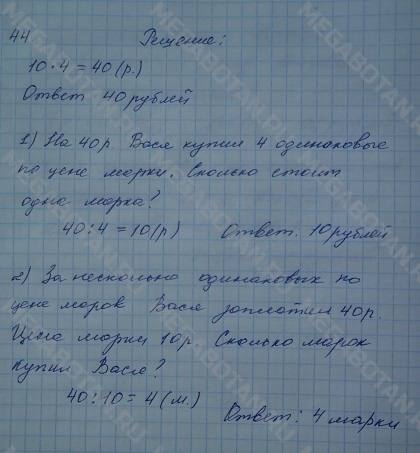 44. Решение:
10 · 4 = 40 (р.)
Ответ 40 рублей
1) На 40р. Вася купил 4 одинаковые
по цене марки. Сколько стоит
одна марка?
40 : 4 = 10 (р) Ответ: 10 рублей
2) За несколько одинаковых по
цене марок Вася заплатил 40р.
Цена марки 10р. Сколько марок
купил Вася?
40 : 10 = 4 (м.)
Ответ: 4 марки
MEGABOTAN.RU